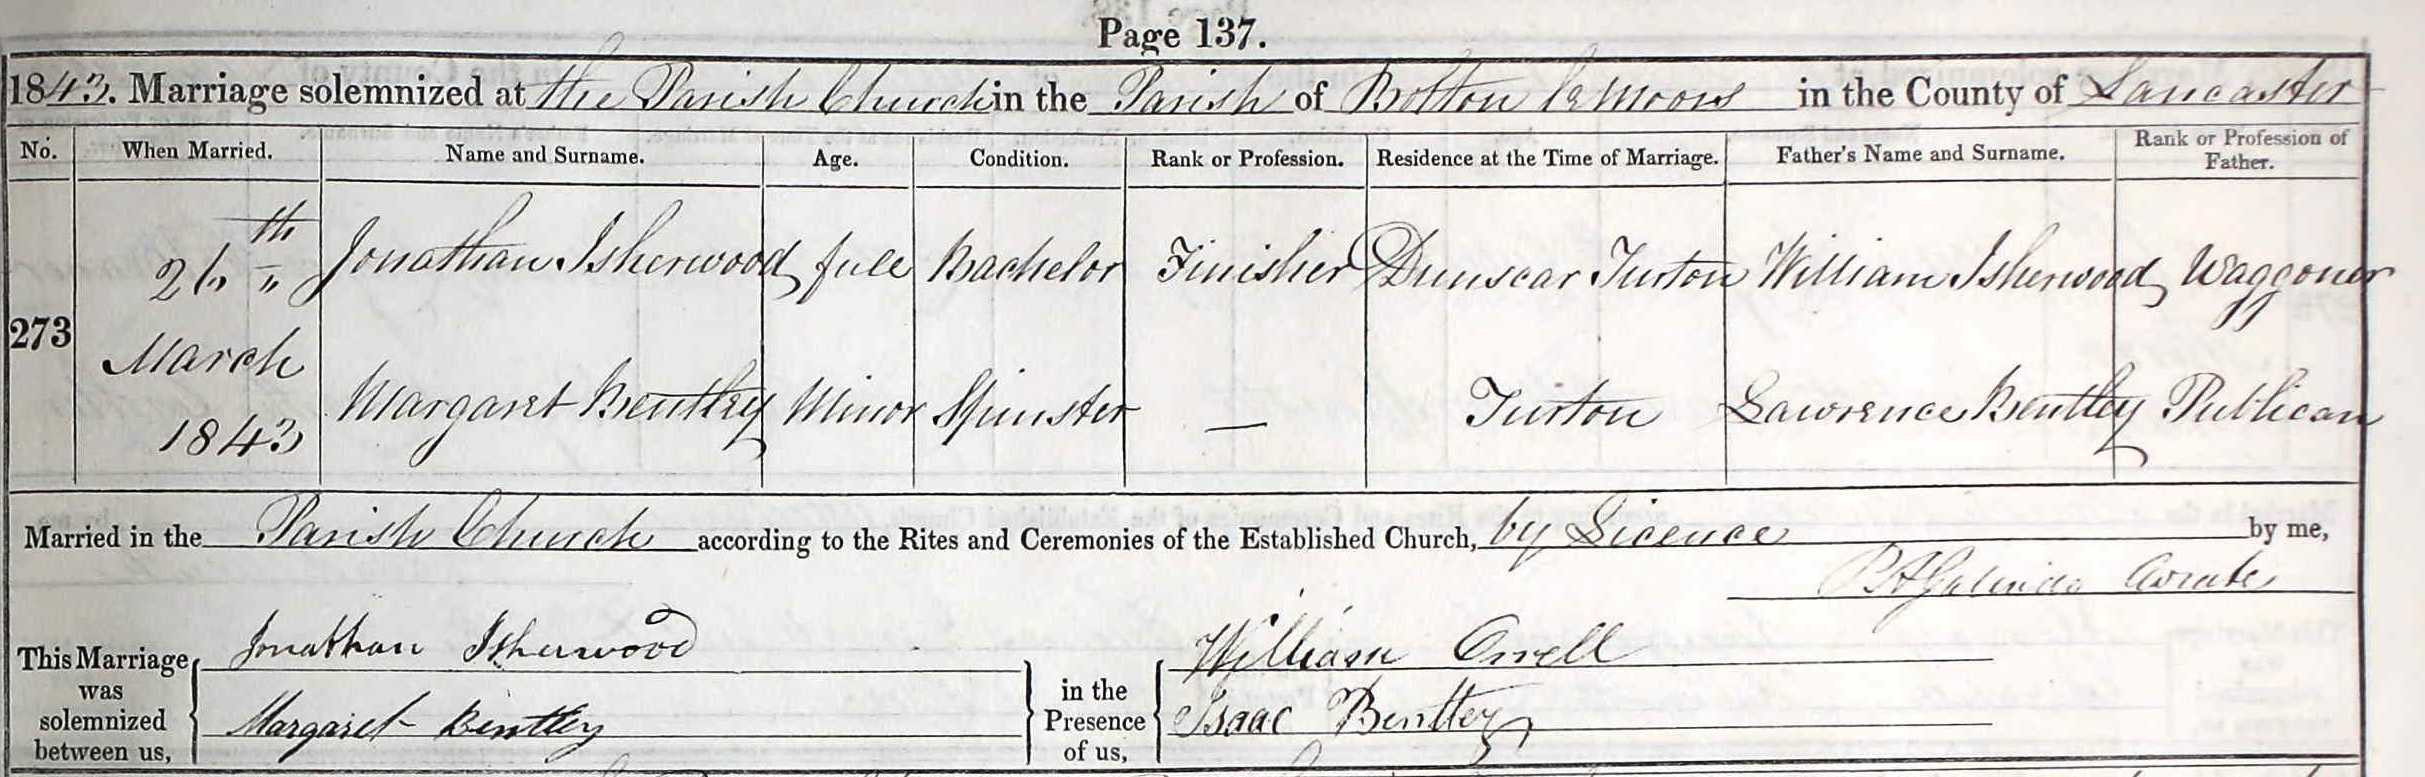 Page 137.
1843. Marriage solemnized at the Parish Church in the Parish of Bolton le Moors in the County of Lancaster
No. When Married. Name and Surname. Age. Condition. Rank or Profession. Residence at the Time of Marriage. Father's Name and Surname. Rank or Profession of Father.
273 26th March 1843 Jonathan Isherwood full Bachelor Finisher Dunscar Turton William Isherwood Waggoner
Margaret Bentley Minor Spinster — Turton Lawrence Bentley Publican
Married in the Parish Church according to the Rites and Ceremonies of the Established Church, by Licence by me,
P A Galindo Curate
This Marriage was solemnized between us, Jonathan Isherwood Margaret Bentley in the Presence of us, William Orrell Isaac Bentley